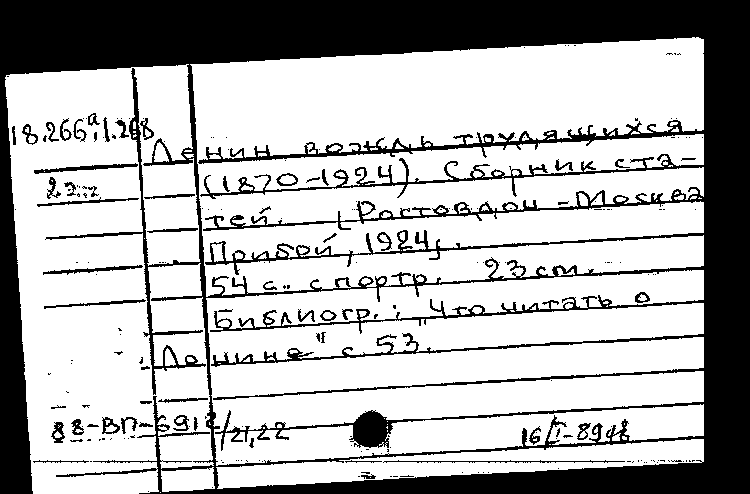 18.266а,1.268
Ленин вождь трудящихся
(1870-1924). Сборник ста-
тей. [Ростовдон-Москва
Прибой, 1924,.
54 с. с портр. 23 cm.
Библиогр.: „Что читать о
Ленине" с. 53.
88-ВП-6912/21,22
16/I-8948